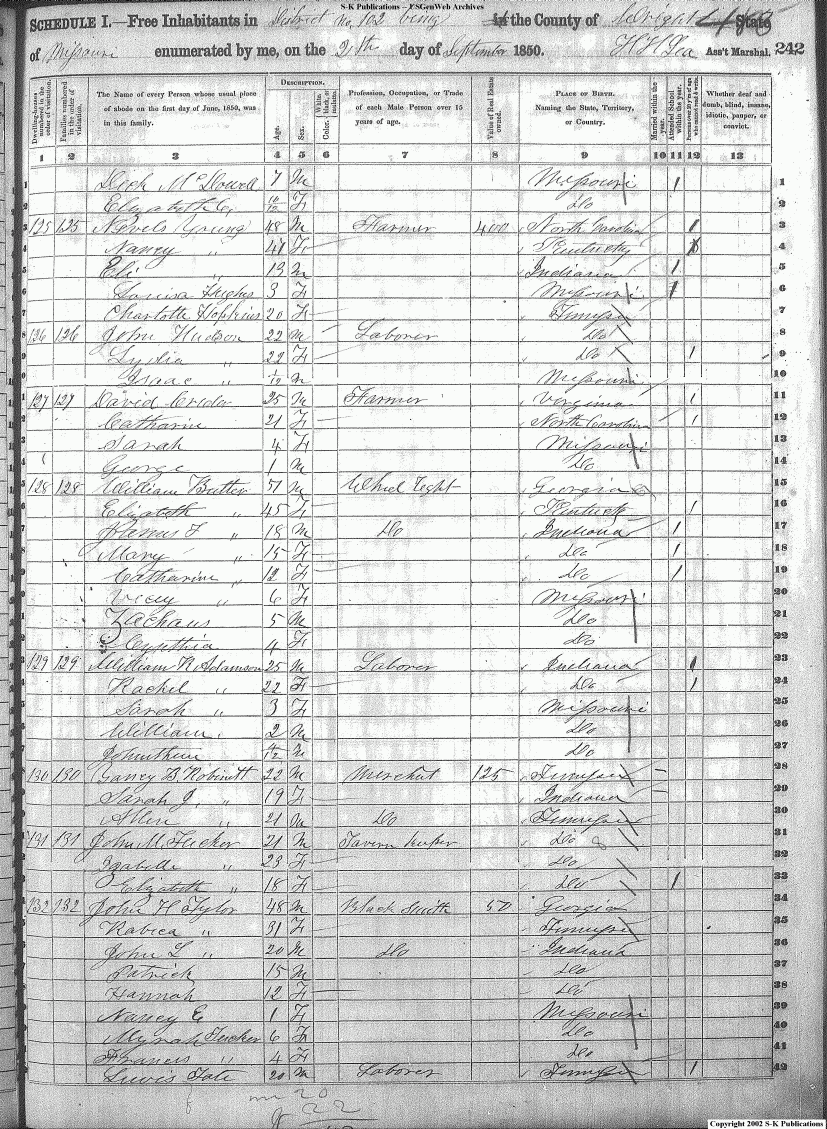 S-K Publications – FSGenWeb Archives
SCHEDULE I.—Free Inhabitants in District No. 102 being in the County of Wright State
of Missouri enumerated by me, on the 21th day of September 1850. H H Lea Ass't Marshal. 242
Dwelling-houses numbered in the order of visitation. Families numbered in the order of visitation. The Name of every Person whose usual place of abode on the first day of June, 1850, was in this family. DESCRIPTION. Age. Sex. Color. Profession, Occupation, or Trade of each Male Person over 15 years of age. Value of Real Estate owned. PLACE OF BIRTH. Naming the State, Territory, or Country. Married within the year. Attended School within the year. Persons over 20 y'rs of age who cannot read & write. Whether deaf and dumb, blind, insane, idiotic, pauper, or convict.
1 2 3 4 5 6 7 8 9 10 11 12 13
1 Dick McDowell 7 M Missouri / 1
2 Elizabeth C. 10/12 F Do 2
3 125 125 Nevels Young 48 M Farmer 400 North Carolina / 3
4 Nancy " 41 F Kentucky 4
5 Eli " 13 M Indiana / 5
6 Louisa Hughs 3 F Missouri / 6
7 Charlotte Hopkins 20 F 7
8 126 126 John Hudson 22 M Laborer Do 8
9 Lydia " 22 F Do / 9
10 Isaac " 1/12 M Missouri 10
11 127 127 David Crider 25 M Farmer Virginia / 11
12 Catharin 21 F North Carolina / 12
13 Sarah 4 F Missouri 13
14 George 1 M Do 14
15 128 128 William Butler M Georgia 15
16 Elizabeth " 45 F Kentucky / 16
17 " 18 M Do Indiana / 17
18 Mary " 15 F Do / 18
19 Catharine " 12 F Do / 19
20 Vicy " 6 F Missouri 20
21 Zachaus 5 M Do 21
22 Cynthia 4 F Do 22
23 129 129 William R Adamson 25 M Laborer Indiana / 23
24 Rachel " 22 F Do / 24
25 Sarah " 3 F Missouri 25
26 William " 2 M Do 26
27 Johnthan M Do 27
28 130 130 B Robinett 22 M Merchat 125 28
29 Sarah J. " 19 F Indiana 29
30 Allen " 21 M Do 30
31 131 131 John M. Tucker 21 M Tavern keeper Do 31
32 Izabelle " 23 F Do 32
33 Elizabeth " 18 F Do / 33
34 132 132 John H Tylor 48 M Black Smith 50 Georgia 34
35 Rabeca " 31 F 35
36 John L " 20 M Do Indiana 36
37 Patrick 15 M Do 37
38 Hannah 12 F Do 38
39 Nancy E 1 F Missouri 39
40 Myrah Tucker 6 F Do 40
41 Francis " 4 F Do 41
42 Lewis Tate 20 M Laborer / 42
m 20
f 22
Copyright 2002 S-K Publications